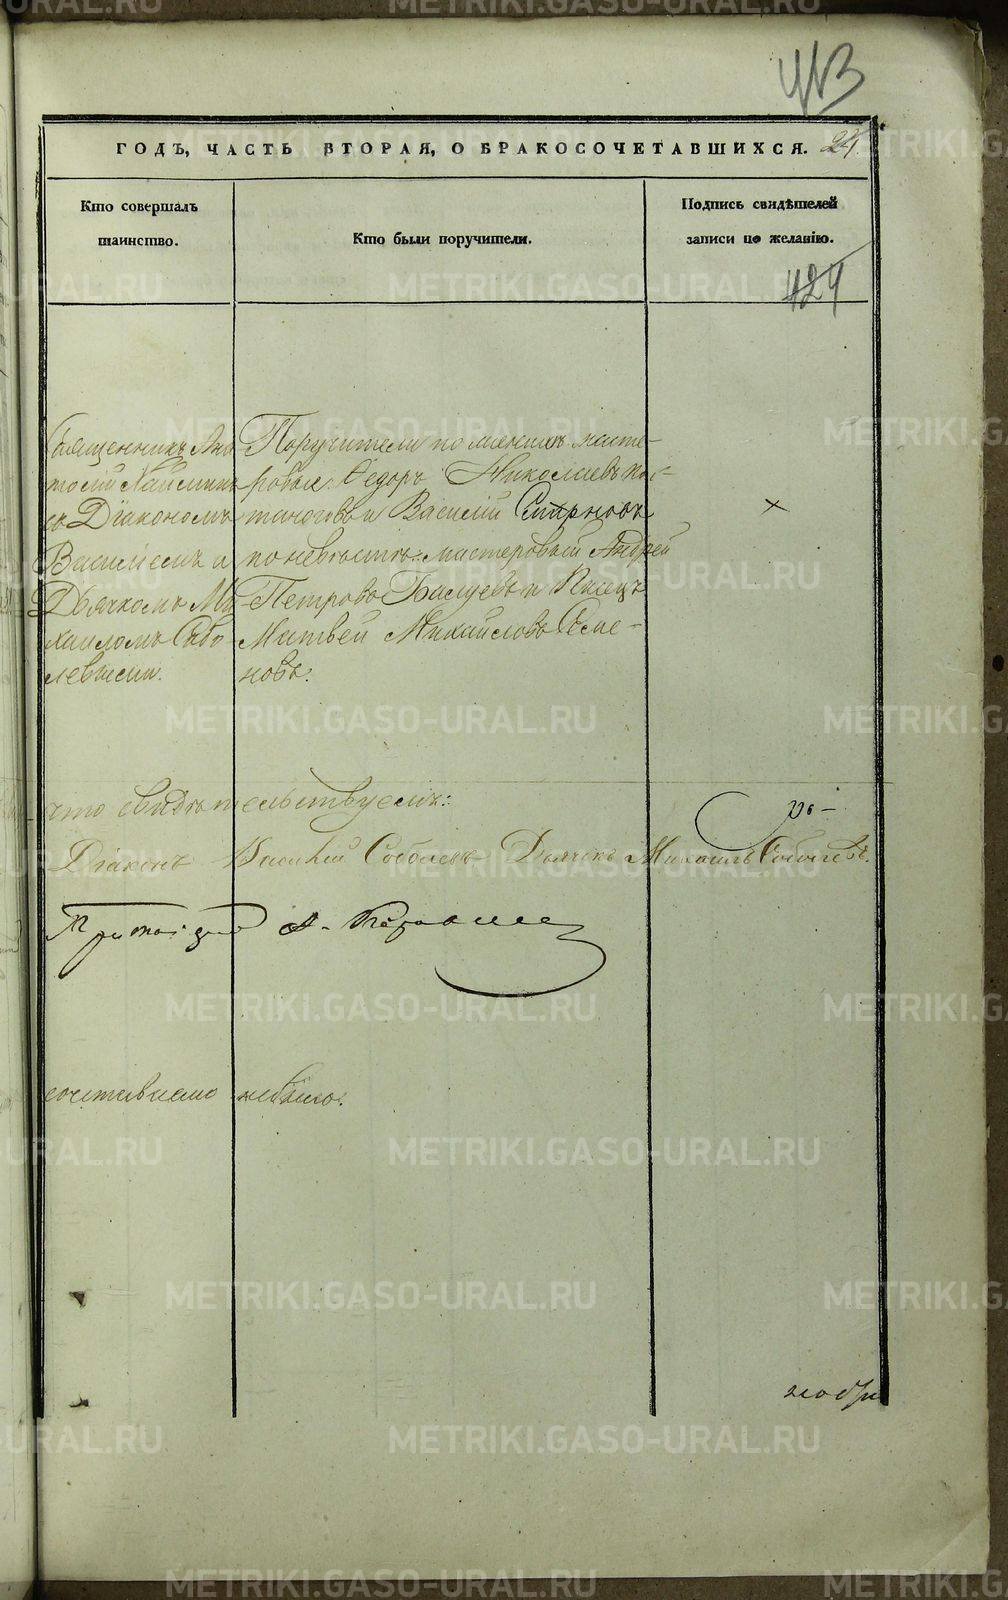 413
ГОДЪ, ЧАСТЬ ВТОРАЯ, О БРАКОСОЧЕТАВШИХСЯ. 24
Кто совершалъ таинство.
Кто были поручители.
Подпись свидѣтелей записи по желанію.
424
Священникъ Ана-
толій
съ Діакономъ
Василіемъ и
Дьячкомъ Ми-
хаиломъ Собо-
левыми.
Поручители по женихѣ масте-
ровые Ѳедоръ Николаевъ
и Василій Смирновъ
по невѣстѣ: мастеровый Андрей
Петровъ Балуевъ и Писецъ
Матвей Михайловъ Семе-
новъ.
что свидѣтельствуемъ:
Діаконъ Василій Соболевъ Дьячекъ Михаилъ Соболевъ.
сочетавшихся небыло.
ноября
METRIKI.GASO-URAL.RU